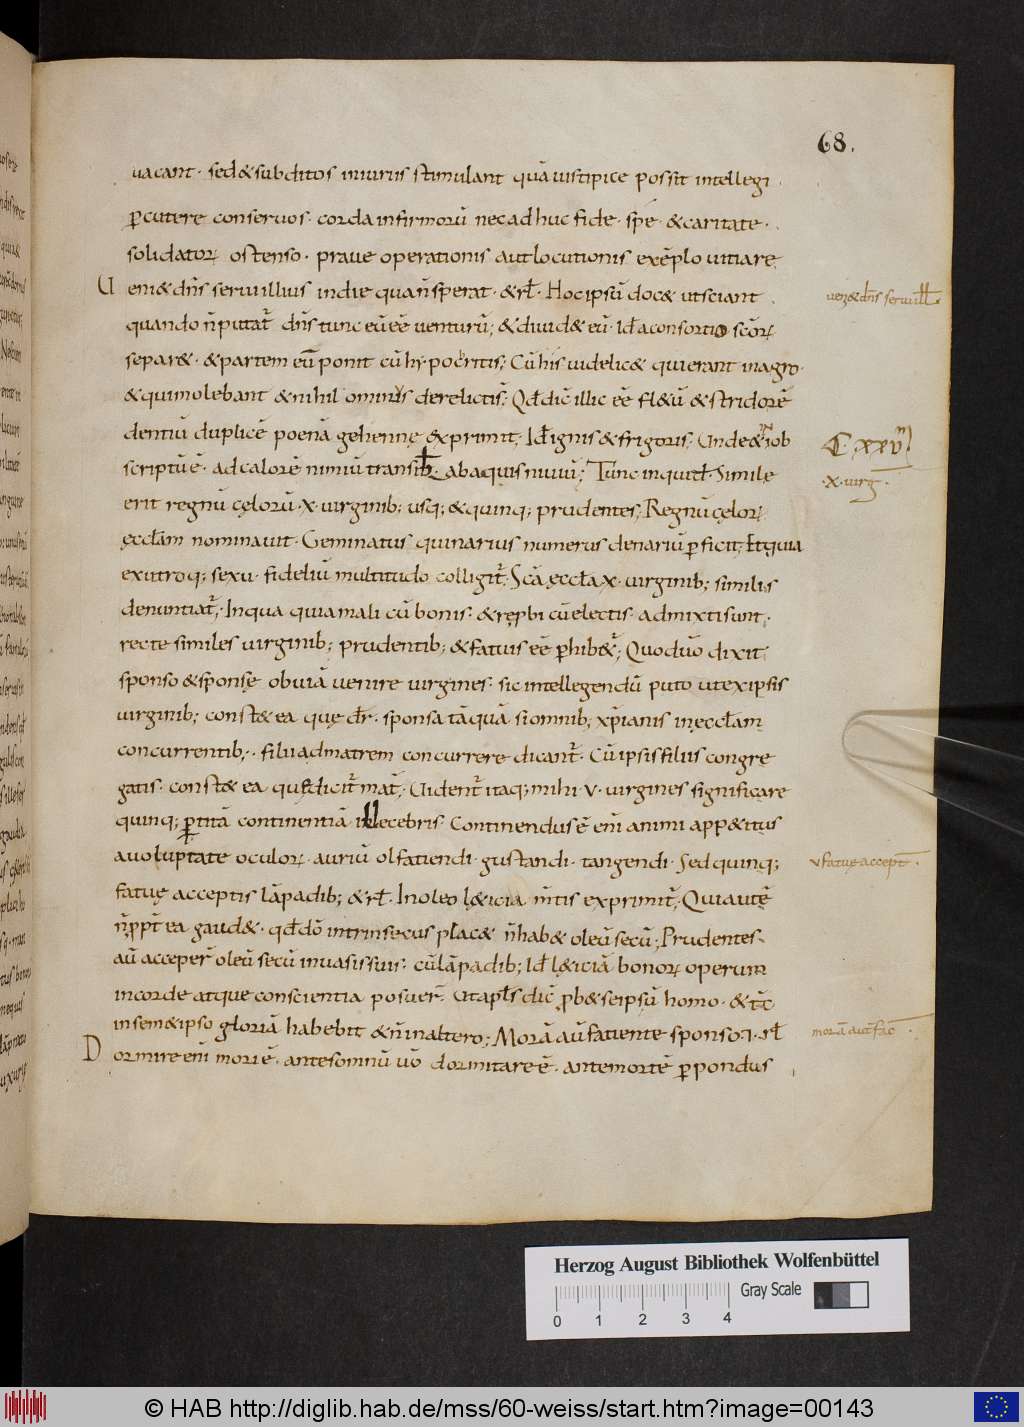 68.
vacant· sed & subditos iniuriis stimulant quā uistipice possit intellegi
p̲cutere conseruos· corda infirmorū nec ad huc fide· spe· & caritate·
solidatoꝝ ostenso· praue operationis aut locutionis exēplo uitiare
Ueni& dn̄s serui illius in die qua n̄ sperat· & rł· Hoc ipsū doc& ut sciant
quando n̄ putat̄ dn̄s tunc eū eē venturū; & diuid& eū· Id ÷ a consortio scōꝝ
separ&· & partem eū ponit cū hypocritis; Cū his uidelic& qui erant in agro·
& qui molebant & nihil ominus derelictis; Qđ dic̄ illic eē fl&ū & stridorē
dentiū duplicē poenā gehennę exprimit; Id ÷ ignis & frigoris; Unde & in iob
scriptū ē· ad calorē nimiū transib̄ ab aquis niuiū; Tunc inquid· Simile
erit regnū cęlorū· x· uirginib; usq; & quinq; prudentes; Regnū cęloꝝ
ęccłam nominauit· Geminatus quinarius numerus denariū p̲ficit; Et quia
ex utroq; sexu· fideliū multitudo colligit̄; Sc̄a ęccła x· uirginib; similis
denuntiat̄; In qua quia mali cū bonis· & repbi cū electis· admixti sunt·
recte similes uirginib; prudentib; & fatuis eē p̲hib&̄; Quod uō dixit
sponso & sponsę obuiā uenire uirgines· sic intellegendū puto ut ex ipsis
uirginib; const& ea quę dr̄· sponsa tāquā si omnib; xp̄ianis in ęccłam
concurrentib;· filii ad matrem concurrere dicant̄· Cū ipsis filiis congre
gatis· const& ea quę dicit̄ mat̄; Uident̄ itaq; mihi· v· uirgines significare
quinq; p̲titā continentiā illecebris· Continendus ē eni animi app&itus
a uoluptate oculoꝝ· auriū olfatiendi· gustandi· tangendi· Sed quinq;
fatuę acceptis lāpadib; & rł· In oleo l&icia m̄tis exprimit̄; Qui autē
n̄ ppt̄ ea gaud&· qđ dō intrinsecus plac& n̄ hab& oleū secū; Prudentes·
aū acceper̄ oleū secū in uasis suis· cū lāpadib; Id ÷ l&iciā bonoꝝ operum
in corde atque conscientia posuer̄· Ut apłs dic̄ p̄b& se ipsū homo· & tc̄
in sem&ipso gloriā habebit & n̄ in altero; Morā aū fatiente sponso·
Dormire eni mori ē· ante somnū uō dormitare ē· ante mortē p̲pondus
uen& dn̄s serui ill
C· xxv
·x· uirg·
v fatuę accept̄·
morā aut̄ fac̄·
Herzog August Bibliothek Wolfenbüttel
Gray Scale
0 1 2 3 4
© HAB http://diglib.hab.de/mss/60-weiss/start.htm?image=00143